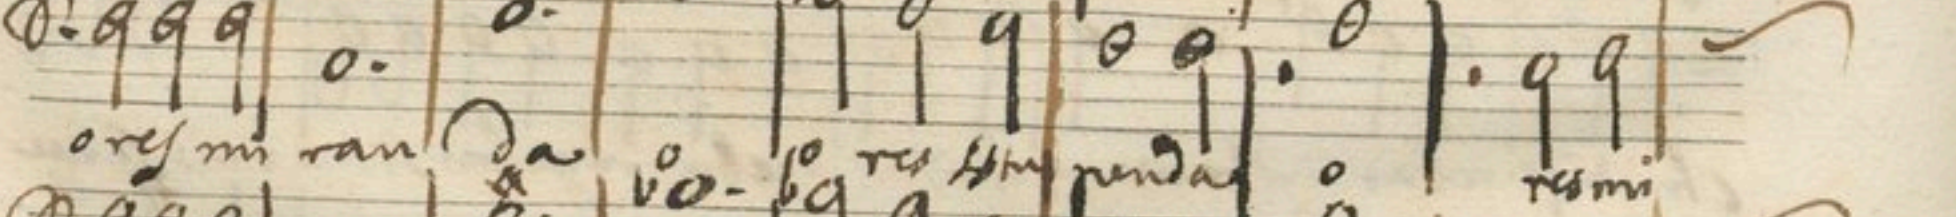 o res mi ran da o o res stu penda o res mi